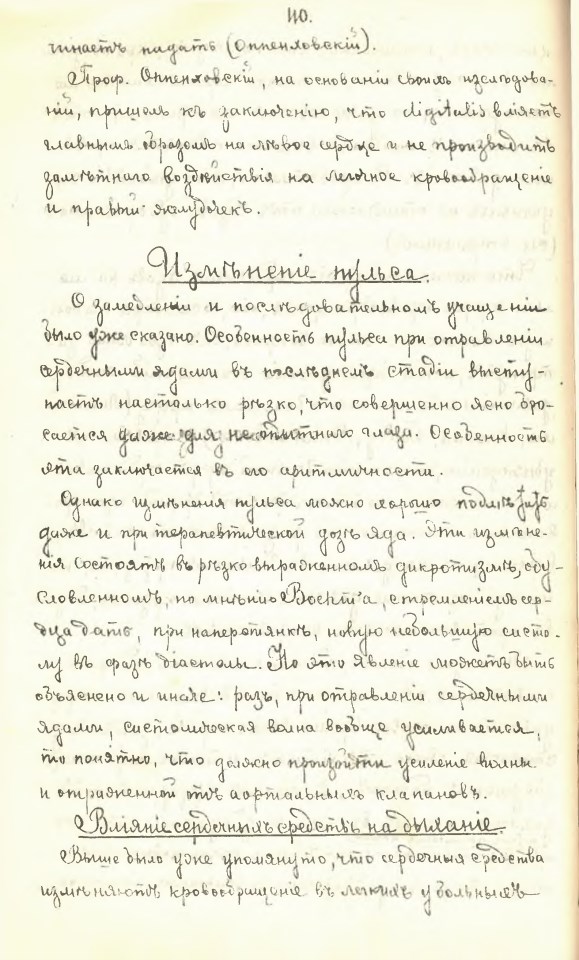 110.
чинаетъ падать (Оппенховскій).
Проф. Оппенховскій, на основаніи своихъ изслѣдова-
ній, пришелъ къ заключенію, что digitalis вліяетъ
главнымъ образомъ на лѣвое сердце и не производитъ
замѣтнаго воздѣйствія на легочное кровообращеніе
и правый желудочекъ.
Измѣненіе пульса.
О замедленіи и послѣдовательномъ учащеніи
было уже сказано. Особенность пульса при отравленіи
сердечными ядами въ послѣднемъ стадіи высту-
паетъ настолько рѣзко, что совершенно ясно бро-
сается даже для неопытнаго глаза. Особенность
эта заключается въ его аритмичности.
Однако измѣненія пульса можно хорошо подмѣтить
даже и при терапевтической дозѣ яда. Эти измѣне-
нія состоятъ въ рѣзко выраженномъ дикротизмѣ, обу-
словленномъ, по мнѣнію стремленіемъ сер-
дца дать, при наперстянкѣ, новую небольшую систо-
лу въ фазѣ діастолы. Но это явленіе можетъ быть
объяснено и иначе: разъ, при отравленіи сердечными
ядами, систолическая волна вообще усиливается,
то понятно, что должно произойти усиленіе волны
и отраженной отъ аортальныхъ клапановъ.
Вліяніе сердечныхъ средствъ на дыханіе.
Выше было уже упомянуто, что сердечныя средства
измѣняютъ кровообращеніе въ легкихъ у больныхъ